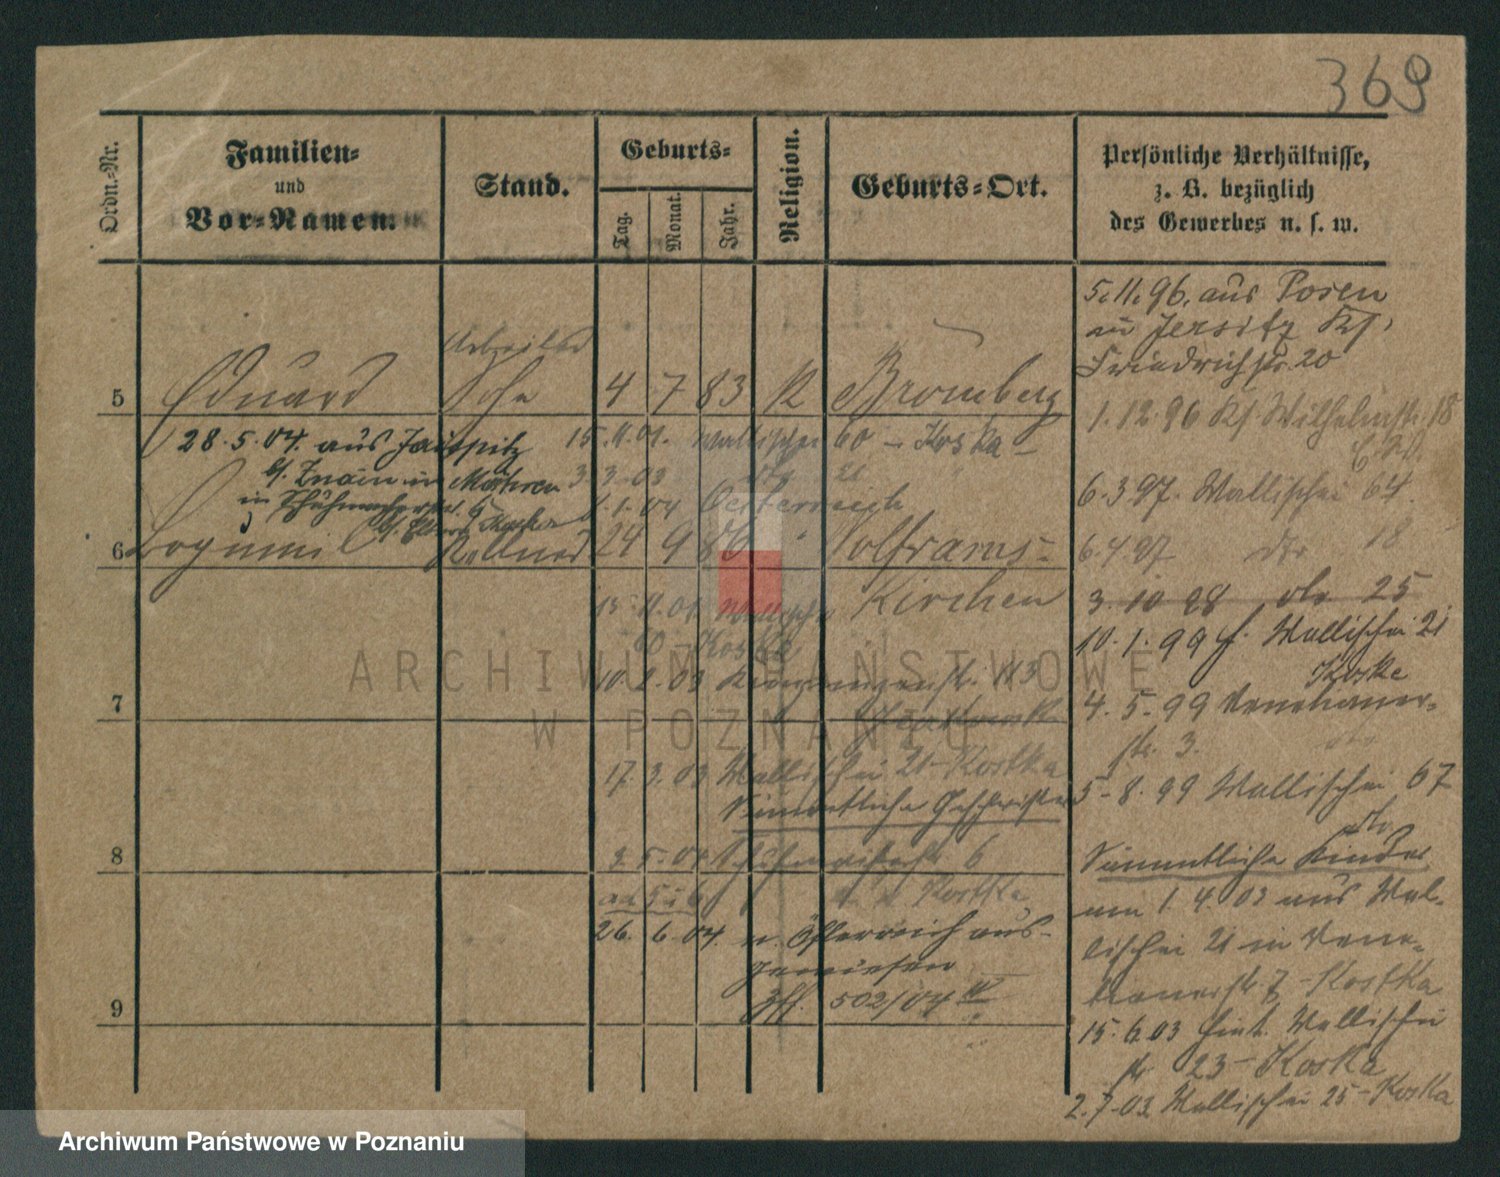 369
Ordn.-Nr.
Familien-
und
Vor-Namen.
Stand.
Geburts-
Tag.
Monat.
Jahr.
Religion.
Geburts-Ort.
Persönliche Verhältnisse,
z. B. bezüglich
des Gewerbes u. s. w.
5.11.96. aus Posen
in Jersitz Ks.
Friedrichstr. 20
Arbeiter
5 Eduard Sohn 4 7 83 K Bromberg
1.12.96 Ks. Wilhelmstr. 18
28.5.04. aus Jaispitz
15.11.01. Wallischei 60 - Koska
Bz. Znaim in Mähren
3.3.03 dto 21
6.3.97. Wallischei 64.
in Schuhmacherstr. 6
1.04 Oesterreich
6 Bogumil Kellner 24 9 86 " Wolframs-
Kirchen
6.4.97 dto 18
3.10.98 dto 25
15.11.01 Wallischei
60 - Koska
10.1.99 f. Wallischei 21
Koske
10.2.03
7
4.5.99 Venetianer-
str. 3.
17.3.03 Wallischei 21 - Kostka
5.8.99 Wallischei 67
Sämmtliche Geschwister
8
3.5.04 Schuhmacherstr. 6
Kostka
Sämmtliche Kinder
am 1.4.03 aus Wal-
lischei 21 in Vene-
tianerstr. 7 - Kostka
ad 5 u 6
26.6.04. n. Österreich aus-
gewiesen
502/04
9
15.6.03 Wallischei
23 - Koska
2.7.03. Wallischei 25 - Koska
ARCHIWUM PAŃSTWOWE
W POZNANIU
Archiwum Państwowe w Poznaniu